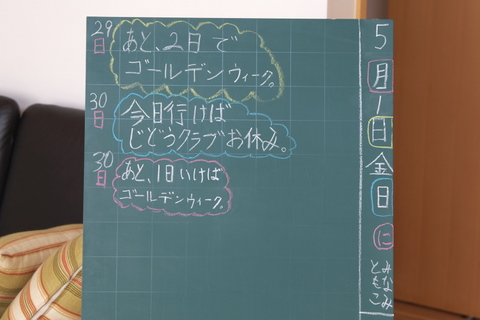 29日
あと、2日で
ゴールデンウィーク。
30日
今日行けば
じどうクラブお休み。
30日
あと、1日いけば
ゴールデンウィーク。
5月1日金日に
みなみ
ともこ